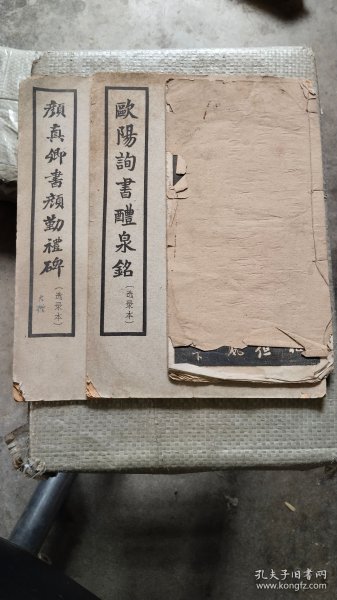 顔真卿書顔勤禮碑
(选录本)
歐陽詢書醴泉銘
(选录本)
孔夫子旧书网
www.kongfz.com